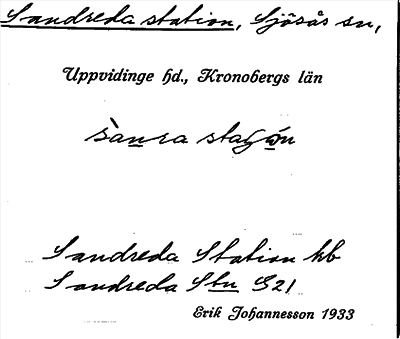 Sandreda station, Sjösås sn,
Uppvidinge hd., Kronobergs län
Sandreda Station hb
Sandreda Stn S21
Erik Johannesson 1933